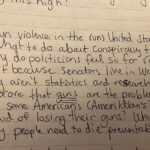 this high?
un violence in the (un) United Sta
what to do about conspiracy t
y do politicians feel so far re
t because senators live in Wa
aren't statistics and research
ore that guns are the problem
some American's (Amerikkkan's
id of losing their guns! Wh
y people need to die preventabl